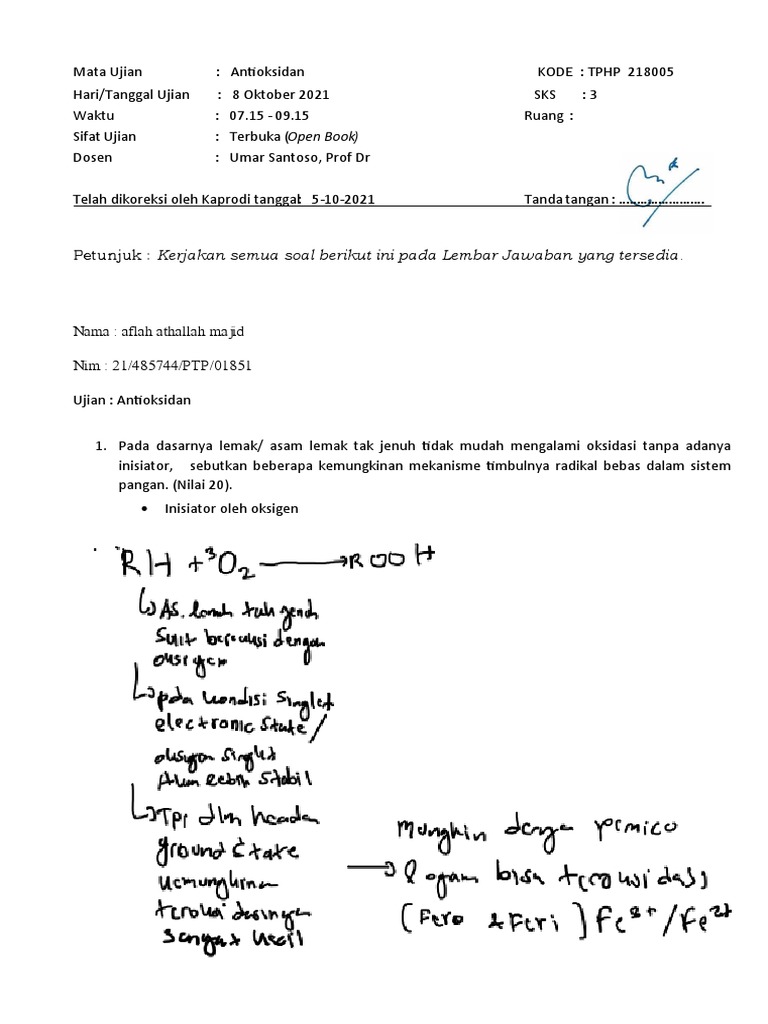 Mata Ujian : Antioksidan KODE : TPHP 218005
Hari/Tanggal Ujian : 8 Oktober 2021 SKS : 3
Waktu : 07.15 - 09.15 Ruang :
Sifat Ujian : Terbuka (Open Book)
Dosen : Umar Santoso, Prof Dr
Telah dikoreksi oleh Kaprodi tanggal: 5-10-2021 Tanda tangan : ..........................
Petunjuk : Kerjakan semua soal berikut ini pada Lembar Jawaban yang tersedia.
Nama : aflah athallah majid
Nim : 21/485744/PTP/01851
Ujian : Antioksidan
1. Pada dasarnya lemak/ asam lemak tak jenuh tidak mudah mengalami oksidasi tanpa adanya
inisiator, sebutkan beberapa kemungkinan mekanisme timbulnya radikal bebas dalam sistem
pangan. (Nilai 20).
• Inisiator oleh oksigen
RH + ³O₂ → ROOH
As. lemak tak jenuh
sulit bereaksi dengan
oksigen
pda kondisi singlet
electronic state/
oksigen singlet
akan lebih stabil
Tpi dlm keadan
ground state
kemungkinan
sangat kecil
mungkin dengn pemicu
→ logam bisa teroksidasi
(Fero & Feri) Fe³⁺/Fe²⁺